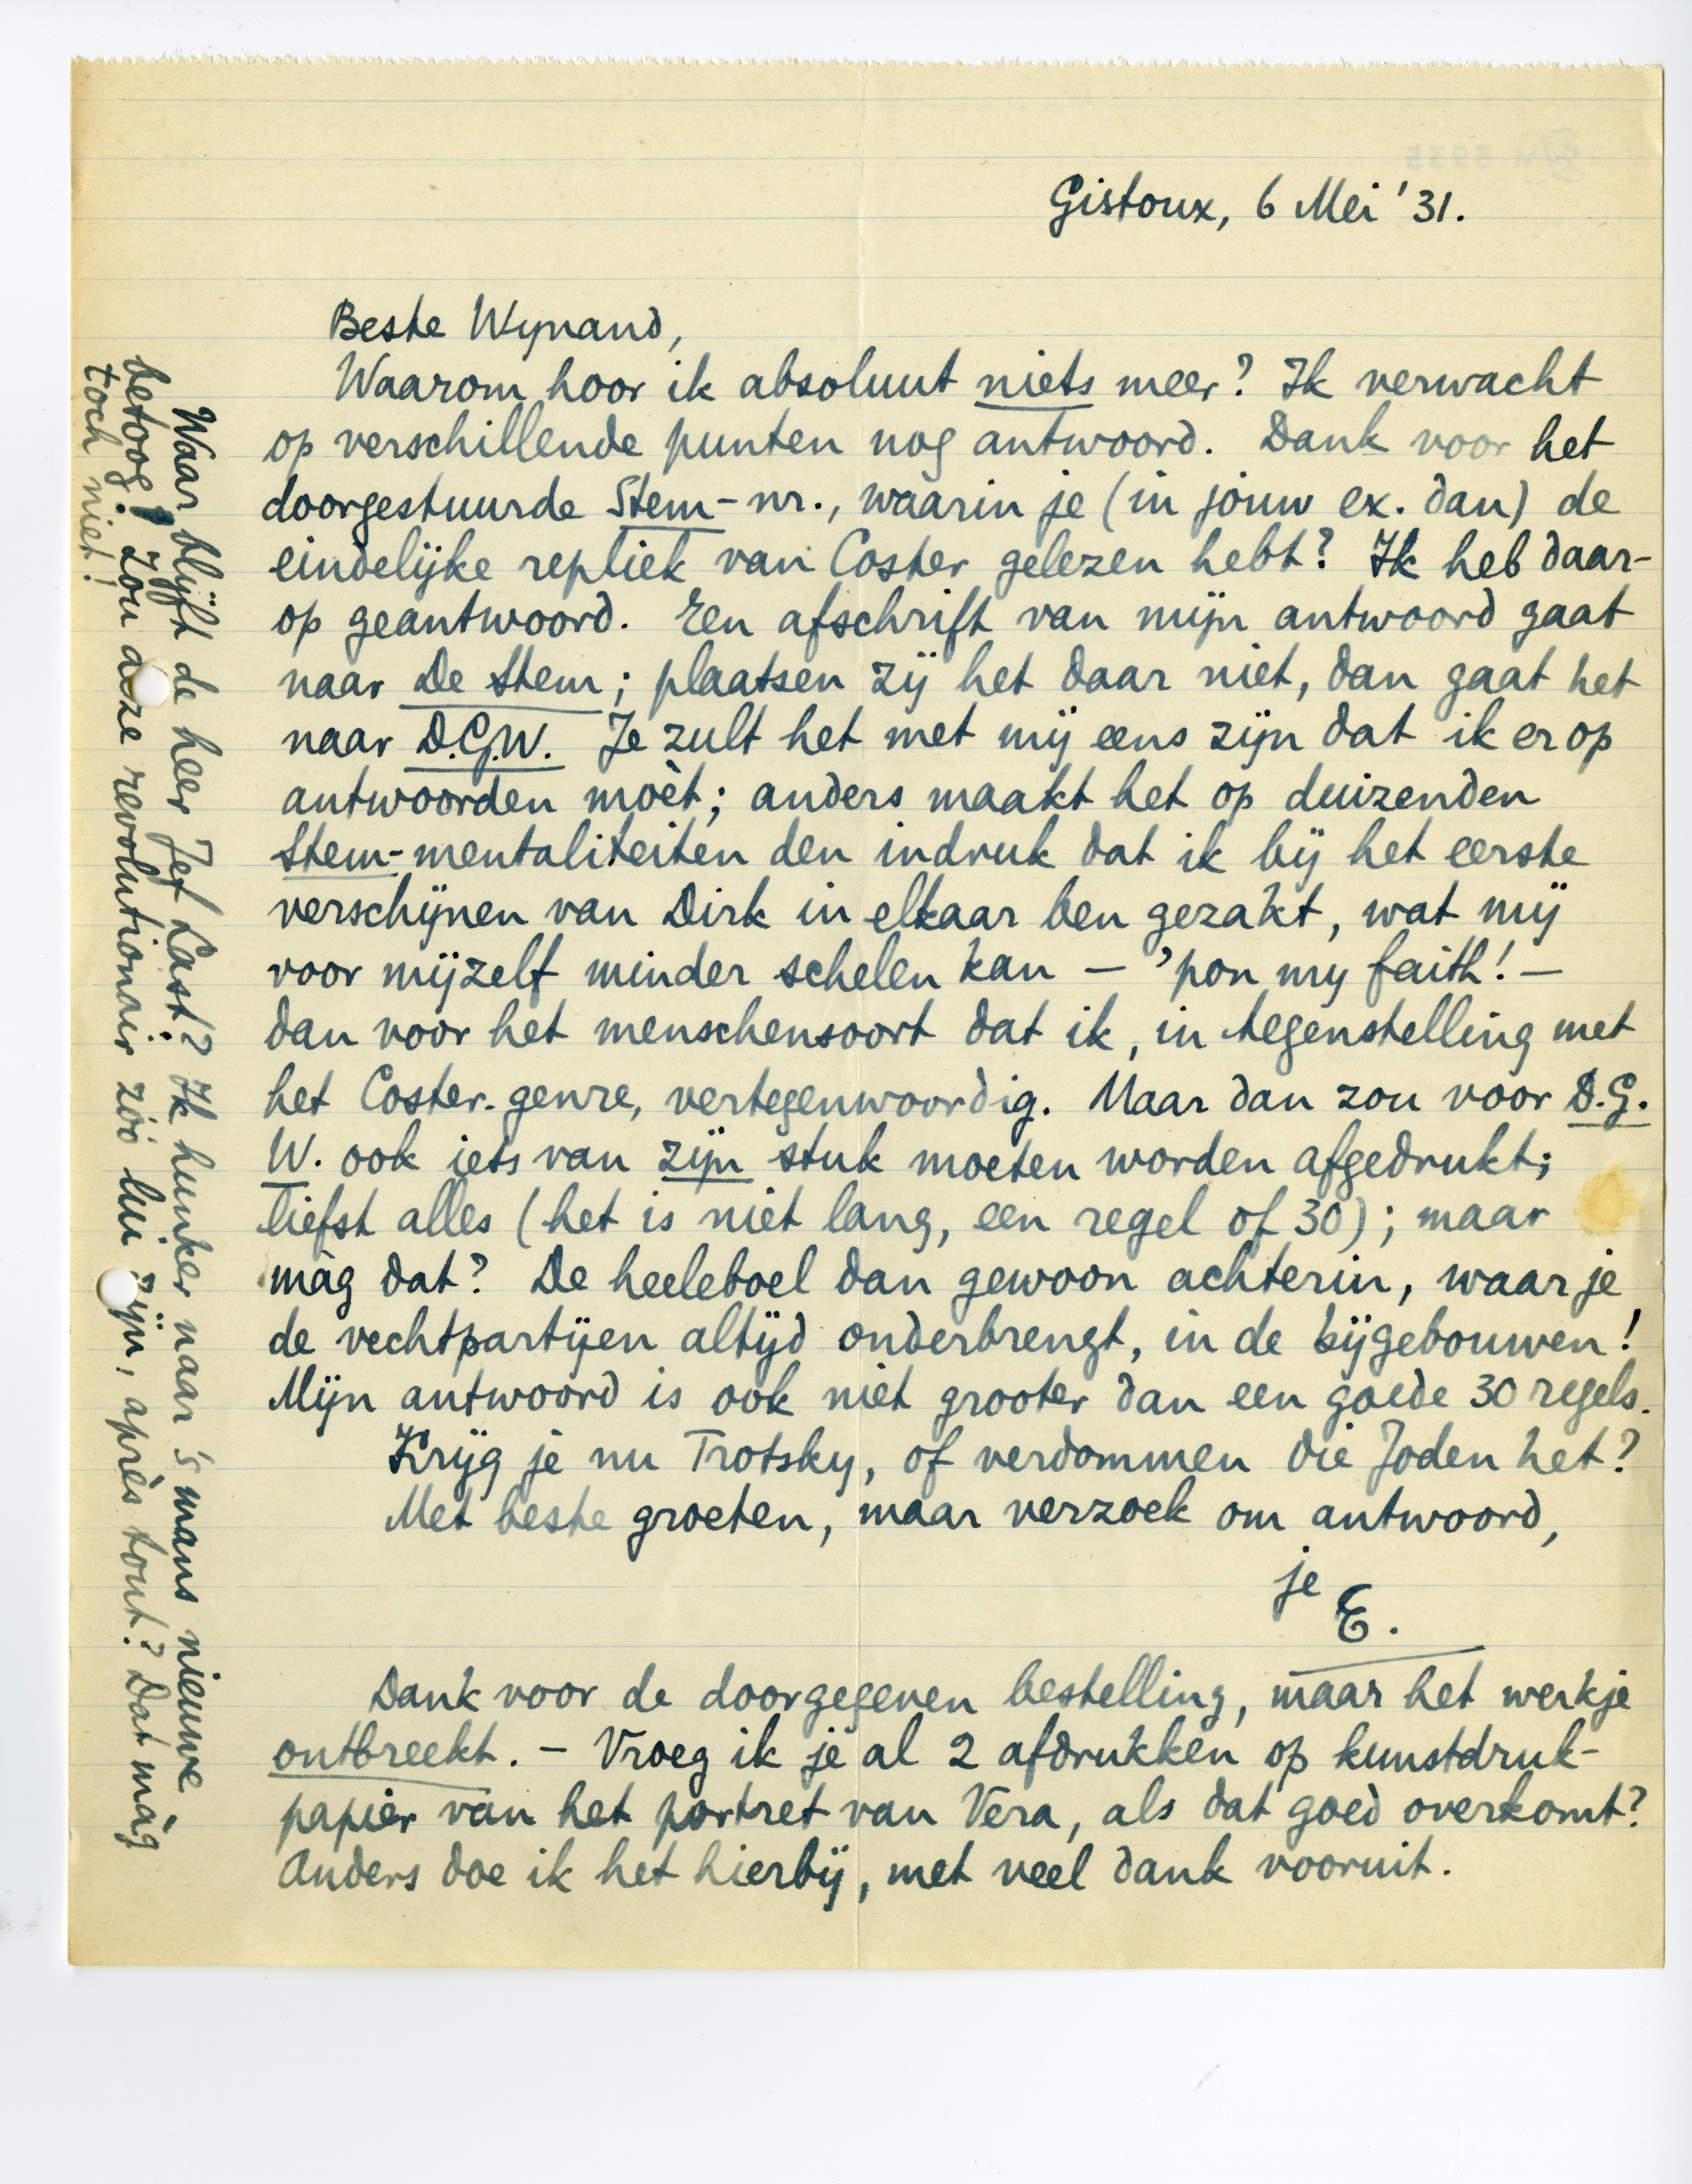 Gistoux, 6 Mei '31.
Beste Wynand,
Waarom hoor ik absoluut niets meer? Ik verwacht
op verschillende punten nog antwoord. Dank voor het
doorgestuurde Stem-nr., waarin je (in jouw ex. dan) de
eindelijke repliek van Coster gelezen hebt? Ik heb daar-
op geantwoord. Een afschrift van mijn antwoord gaat
naar De Stem; plaatsen zij het daar niet, dan gaat het
naar D.G.W. Je zult het met mij eens zijn dat ik er op
antwoorden moèt; anders maakt het op duizenden
Stem-mentaliteiten den indruk dat ik bij het eerste
verschijnen van Dirk in elkaar ben gezakt, wat mij
voor mijzelf minder schelen kan – 'pon my faith! –
dan voor het menschensoort dat ik, in tegenstelling met
het Coster-genre, vertegenwoordig. Maar dan zou voor D.G.
W. ook iets van zijn stuk moeten worden afgedrukt;
liefst alles (het is niet lang, een regel of 30); maar
màg dat? De heeleboel dan gewoon achterin, waar je
de vechtpartijen altijd onderbrengt, in de bijgebouwen!
Mijn antwoord is ook niet grooter dan een goede 30 regels.
Krijg je nu Trotsky, of verdommen die Joden het?
Met beste groeten, maar verzoek om antwoord,
je
E.
Dank voor de doorgegeven bestelling, maar het werkje
ontbreekt. – Vroeg ik je al 2 afdrukken op kunstdruk-
papier van het portret van Vera, als dat goed overkomt?
Anders doe ik het hierbij, met veel dank vooruit.
Waar blijft de heer Jef Last? Ik hunker naar 's mans nieuwe
betoog! Zou onze revolutionair zóó lui zijn, après tout? Dat màg
toch niet!